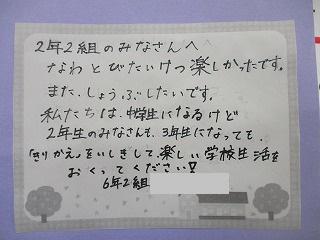 2年2組のみなさんへ
なわとびたいけつ楽しかったです。
また、しょうぶしたいです。
私たちは、中学生になるけど
2年生のみなさんも、3年生になっても、
「きりかえ」をいしきして、楽しい学校生活を
おくってください!!
6年2組